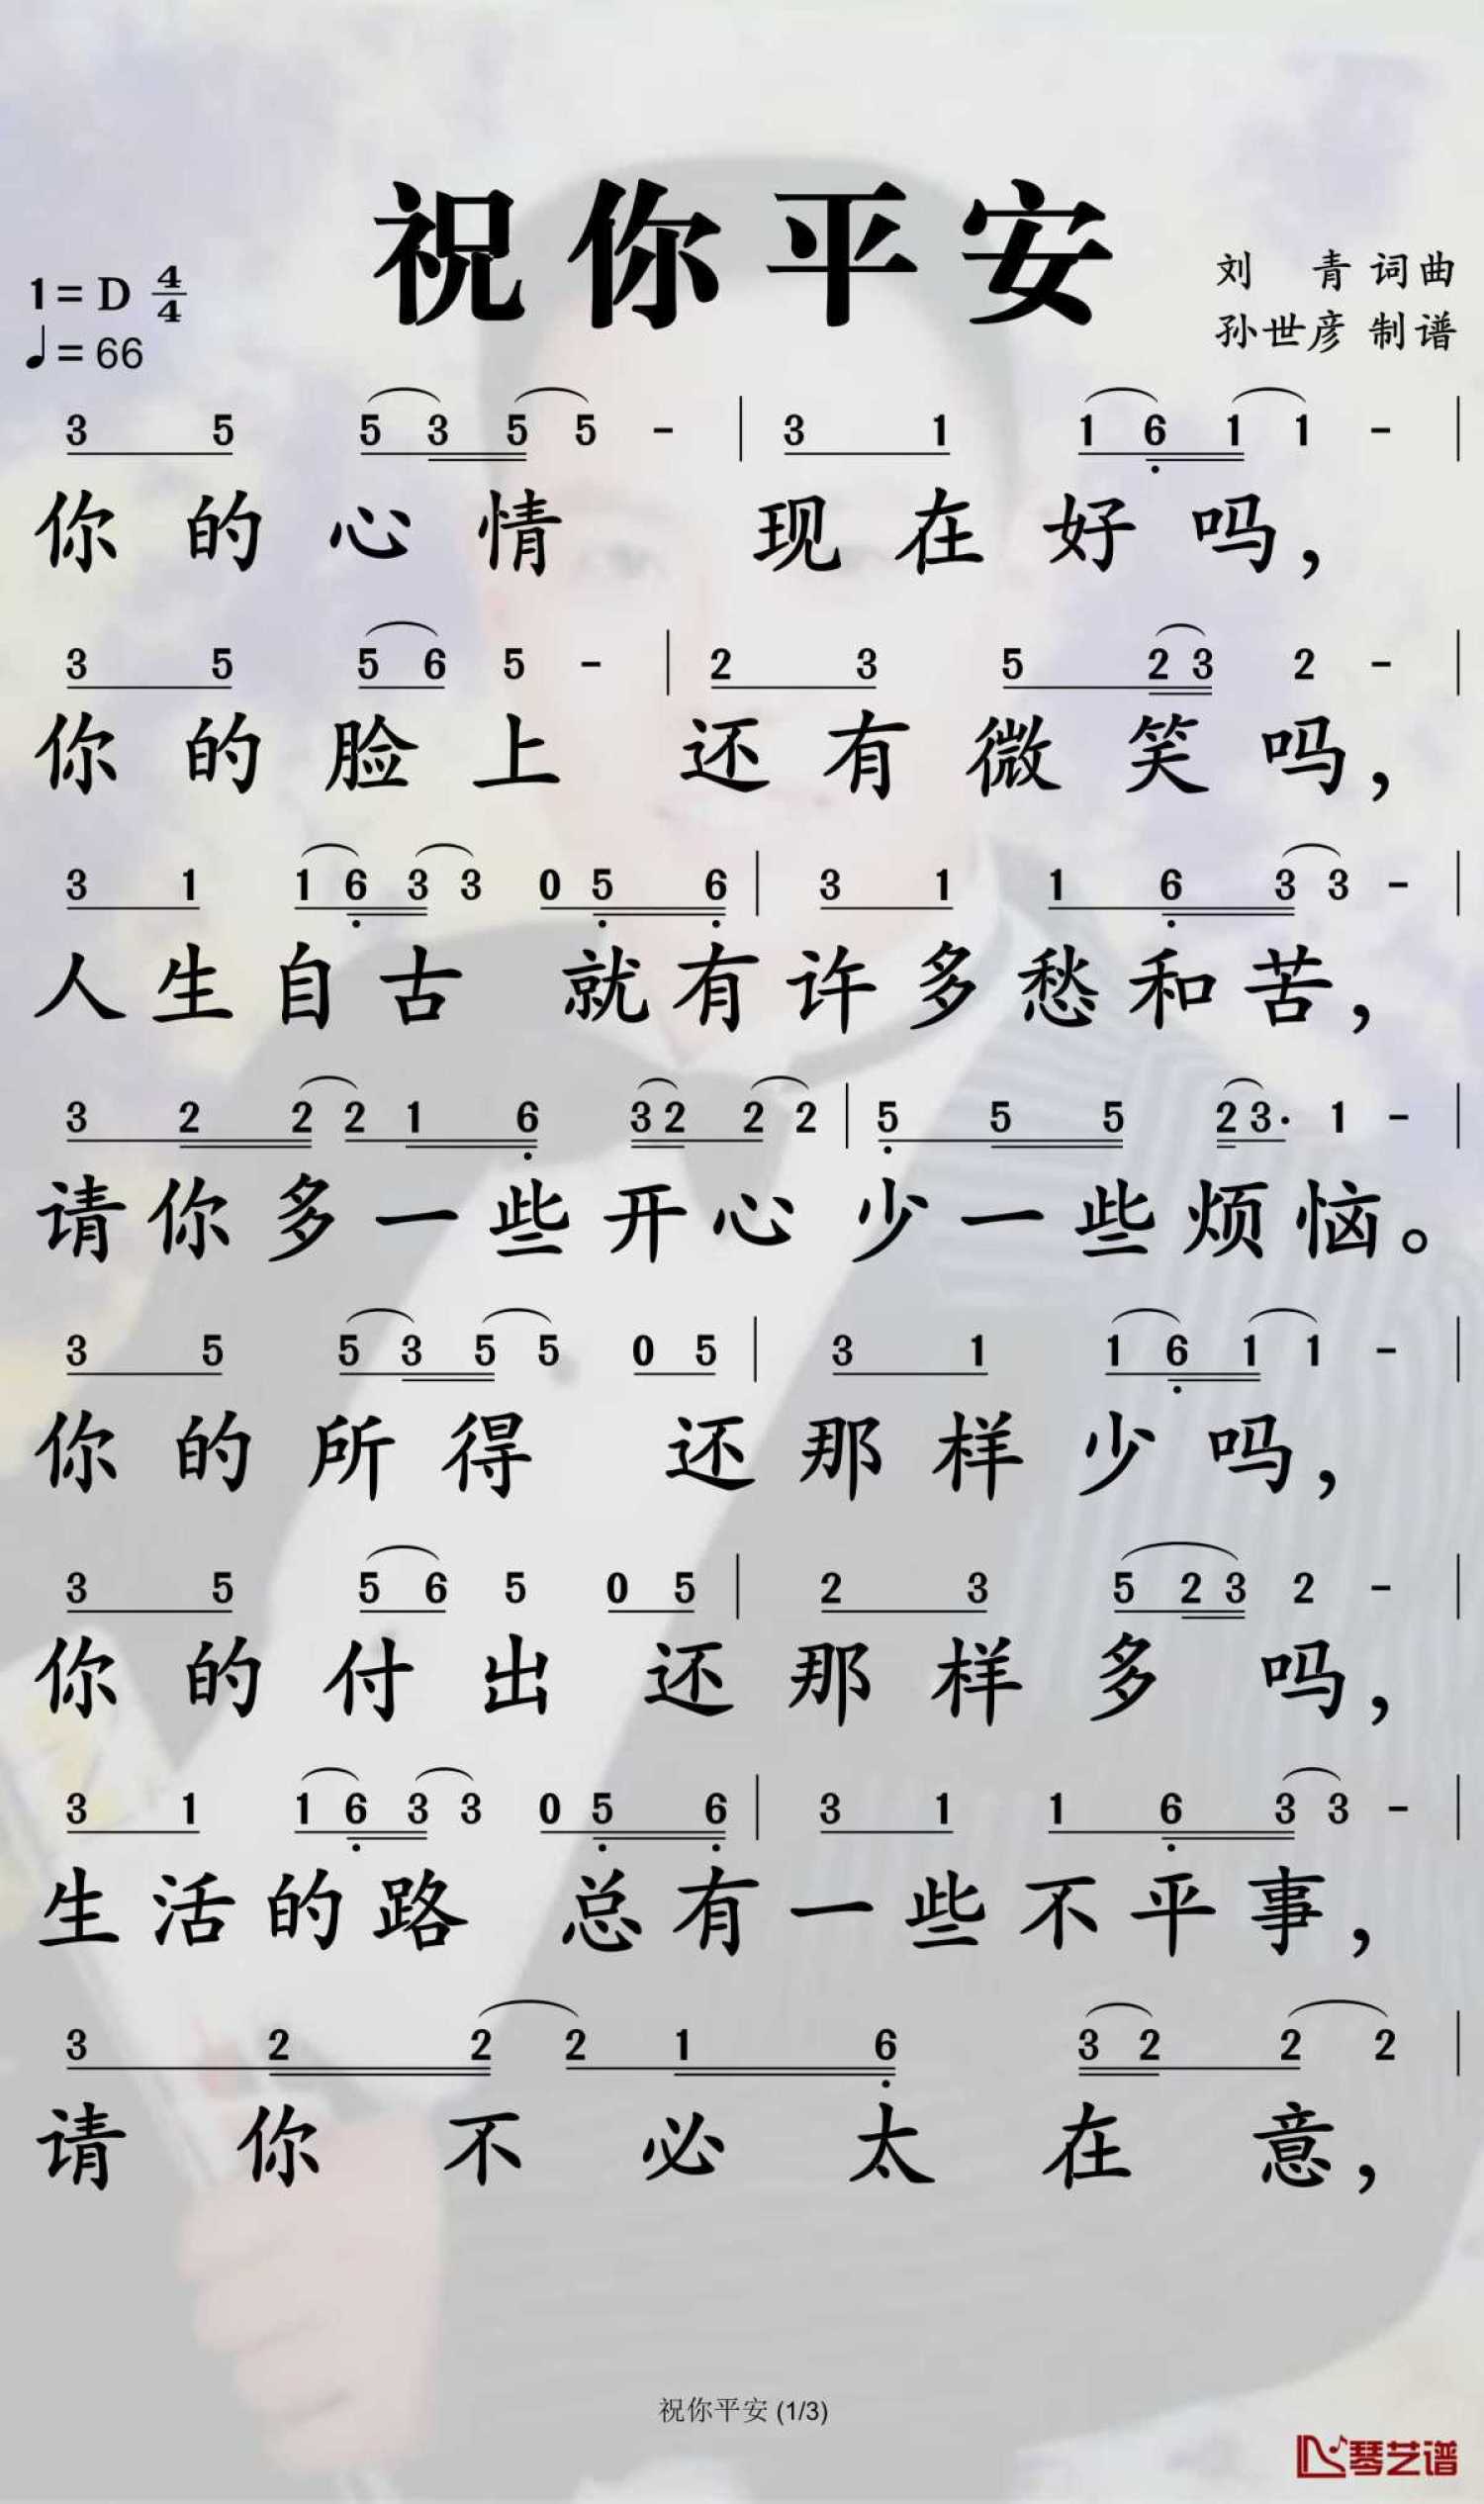 祝你平安
1=D 4/4
刘 青 词曲
♩=66
孙世彦 制谱
3 5 5 3 5 5 - | 3 1 1 6 1 1 - |
你的心情 现在好吗，
3 5 5 6 5 - | 2 3 5 2 3 2 - |
你的脸上 还有微笑吗，
3 1 1 6 3 3 0 5 6 | 3 1 1 6 3 3 - |
人生自古 就有许多愁和苦，
3 2 2 2 1 6 3 2 2 2 | 5 5 5 2 3· 1 - |
请你多一些开心 少一些烦恼。
3 5 5 3 5 5 0 5 | 3 1 1 6 1 1 - |
你的所得 还那样少吗，
3 5 5 6 5 0 5 | 2 3 5 2 3 2 - |
你的付出还那样多吗，
3 1 1 6 3 3 0 5 6 | 3 1 1 6 3 3 - |
生活的路 总有一些不平事，
3 2 2 2 1 6 3 2 2 2 |
请你不必太在意，
祝你平安 (1/3)
琴艺谱